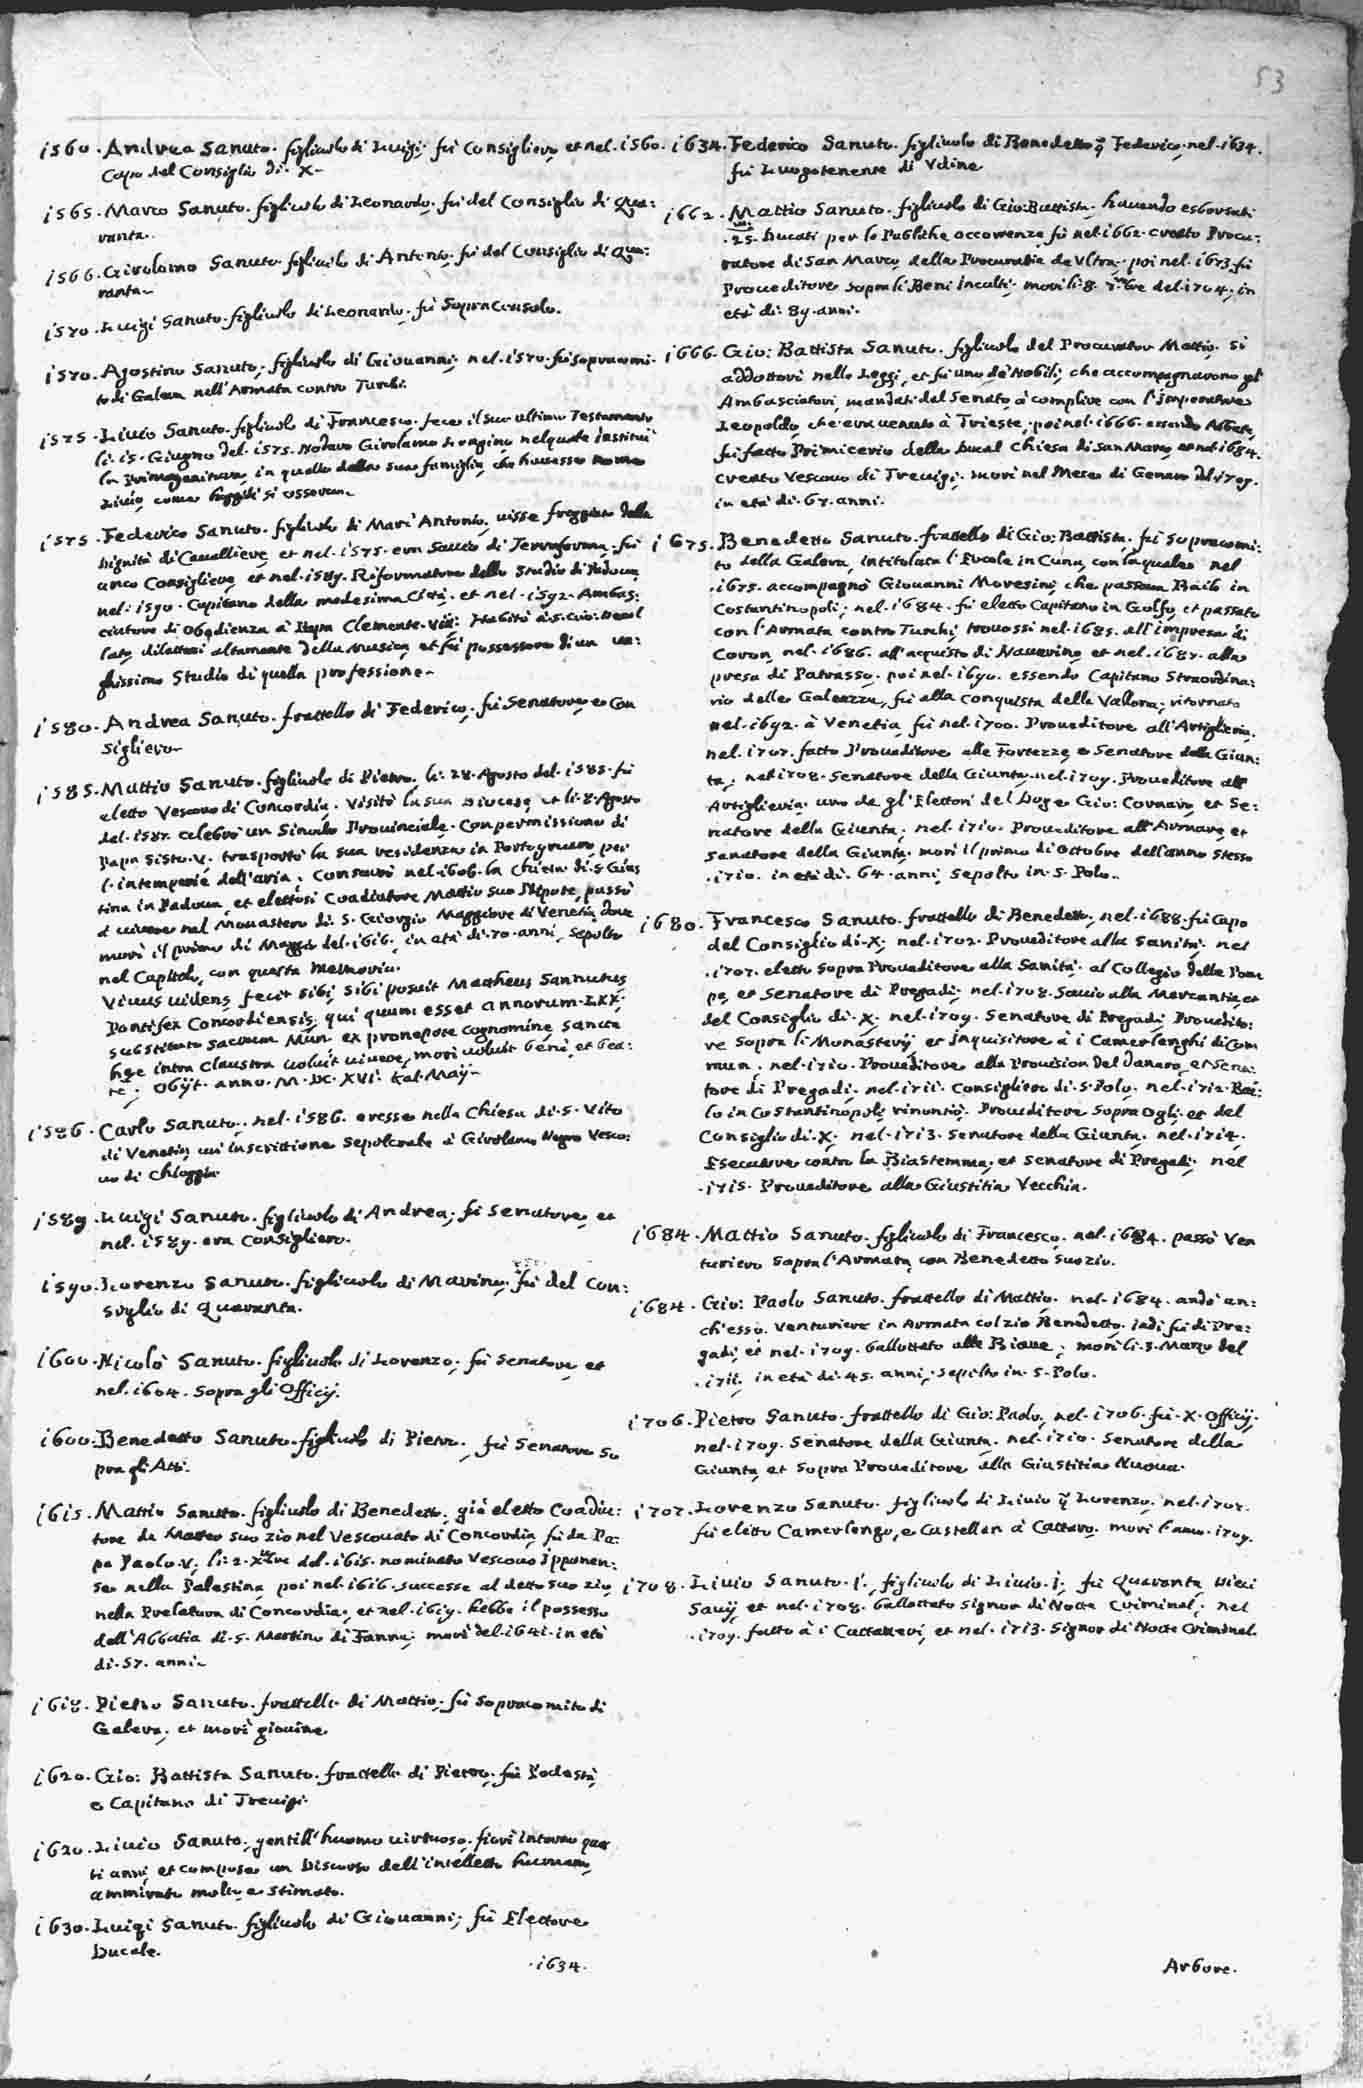 53
1560. Andrea Sanuto. figliuolo di Luigi; fù Consigliere, et nel. 1560.
Capo del Consiglio di. X.
1565. Marco Sanuto. figliuolo di Leonardo, fù del Consiglio di Qua:
ranta.
1566. Girolamo Sanuto. figliuolo di Antonio, fù del Consiglio di Qua:
ranta.
1570. Luigi Sanuto. figliuolo di Leonardo, fù Sopraconsolo.
1570. Agostino Sanuto, figliuolo di Giovanni, nel. 1570. fù sopracomi:
to di Galera nell'Armata contro Turchi.
1575. Livio Sanuto. figliuolo di Francesco. fece il suo ultimo Testamento
li. 15. Giugno del. 1575. Nodaro Girolamo Longino, nel quale instituì
la Primogenitura, in quello della sua famiglia, che havesse nome
Livio, come hoggidì si osserva.
1575. Federico Sanuto. figliuolo di Marc'Antonio, visse freggiato della
dignità di Cavalliere, et nel. 1575. era Savio di Terraferma. fù
anco Consigliere, et nel. 1589. Riformatore dello Studio di Padova,
nel. 1590. Capitano della medesima Città. et nel. 1592. Ambas:
ciatore di Obedienza à Papa Clemente. VIII. Habitò à S. Gio: Decol
lato, dilettosi altamente della Musica, et fù possessore di un va:
ghissimo Studio di quella professione.
1580. Andrea Sanuto. frattello di Federico, fù Senatore, e Con
sigliero.
1585. Mattio Sanuto. figliuolo di Pietro, li. 28. Agosto del. 1585. fù
eletto Vescovo di Concordia. Visitò la sua Diocese, et li. 8. Agosto
del. 1587. celebrò un Sinodo Provinciale. Con permissione di
Papa Sisto. V. trasportò la sua residenza in Portogruaro, per
l'intemperie dell'aria. Consacrò nel. 1606. la Chiesa di. S. Gius
tina in Padova, et elettosi Coadiutore Mattio suo Nipote, passò
à vivere nel Monastero di. S. Giorgio Maggiore di Venetia, dove
morì il primo di Maggio del. 1616. in età di. 70. anni, Sepolto
nel Capitolo, con questa memoria.
Vivus videns fecit sibi, sibi posuit Mattheus Sannutus
Pontifex Concordiensis, qui quum esset annorum. LXX.
substituto sacrum Mun. ex pronepote cognomine, sancta
hęc intra Claustra voluit vivere, mori voluit benè, et bea:
tè. Obijt. anno. M. DC. XVI. Kal. Maij.
1586. Carlo Sanuto, nel. 1586. eresse nella Chiesa di. S. Vito
di Venetia, un'inscrittione sepolcrale à Girolamo Negro Vesco:
vo di Chioggia.
1589. Luigi Sanuto. figliuolo di Andrea; fù Senatore, et
nel. 1589. era Consigliero.
1590. Lorenzo Sanuto. figliuolo di Marino, fù del Con:
siglio di Quaranta.
1600. Nicolò Sanuto. figliuolo di Lorenzo; fù Senatore, et
nel. 1604. Sopra gli Officij.
1600. Benedetto Sanuto. figliuolo di Pietro, fù Senatore So
pra gli Atti.
1615. Mattio Sanuto. figliuolo di Benedetto, già eletto Coadiu:
tore da Matteo suo zio nel Vescovato di Concordia, fù da Pa:
pa Paolo. V. li: 2. Xmbre del. 1615. nominato Vescovo Ipponen:
se nella Palestina, poi nel. 1616. successe al detto suo zio,
nella Prelatura di Concordia, et nel. 1619. hebbe il possesso
dell'Abbatia di. S. Martino di Fanna; morì del. 1641. in età
di. 57. anni.
1618. Pietro Sanuto. frattello di Mattio, fù Sopracomito di
Galera, et morì giovine
1620. Gio: Battista Sanuto. frattello di Pietro, fù Podestà,
e Capitano di Trevigi.
1620. Livio Sanuto, gentill'huomo virtuoso, fiorì intorno ques
ti anni, et compose un Discorso dell'intelletto humano,
ammirato molto, e stimato.
1630. Luigi Sanuto. figliuolo di Giovanni, fù Elettore
Ducale.
.1634.
1634. Federico Sanuto. figliuolo di Benedetto q. Federico, nel. 1634.
fù Luogotenente di Udine
1662. Mattio Sanuto. figliuolo di Gio: Battista, havendo esborsati
.25. Ducati per le Publiche occorrenze, fù nel. 1662. creato Procu:
ratore di San Marco della Procuratia de Ultra, poi nel. 1673. fù
Proveditore sopra li Beni Inculti, morì li. 8. 7mbre del. 1704. in
età di: 89. anni.
1666. Gio: Battista Sanuto. figliuolo del Procurator Mattio, si
addottorò nelle Leggi, et fù uno de' Nobili, che accompagnarono gl'
Ambasciatori, mandati dal Senato, à complire con l'Imperatore
Leopoldo, che era venuto à Trieste, poi nel. 1666. essendo Abbate,
fù fatto Primicerio della Ducal Chiesa di San Marco, et nel. 1684.
creato Vescovo di Trevigi. morì nel Mese di Genaro del. 1709.
in età di. 67. anni.
1675. Benedetto Sanuto. frattello di Gio: Battista, fù sopracomi:
to della Galera, intitolata l'Ercole in Cuna, con la quale, nel
.1675. accompagnò Giovanni Moresini, che passava Bailo in
Costantinopoli; nel. 1684. fù eletto Capitano in Golfo, et passato
con l'Armata contro Turchi, trovossi nel. 1685. all'impresa di
Coron, nel. 1686. all'acquisto di Navarino, et nel. 1687. alla
presa di Patrasso. poi nel. 1690. essendo Capitano Straordina:
rio delle Galeazze, fù alla conquista della Vallona; ritornato
nel. 1692. à Venetia, fù nel. 1700. Proveditore all'Artiglieria.
nel. 1707. fatto Proveditore alle Fortezze, e Senatore della Giun:
ta; nel 1708. Senatore della Giunta. nel. 1709. Proveditore all'
Artiglieria. uno de gl'Elettori del Doge Gio: Cornaro, et Se:
natore della Giunta; nel. 1710. Proveditore all'Armare, et
Senatore della Giunta. morì il primo di Ottobre dell'anno stesso
.1710. in età di. 64. anni, sepolto in. S. Polo.
1680. Francesco Sanuto. frattello di Benedetto, nel. 1688. fù Capo
del Consiglio di. X; nel. 1702. Proveditore alla Sanità. nel
.1707. eletto Sopra Proveditore alla Sanità. al Collegio delle Pom
pe, et Senatore di Pregadi; nel. 1708. Savio alla Mercantia, et
del Consiglio di. X. nel. 1709. Senatore di Pregadi, Provedito:
re sopra li Monasterij, et Inquisitore à i Camerlenghi di Com
mun. nel. 1710. Proveditore alla Provision del danaro, et Sena:
tore di Pregadi. nel. 1711. Consigliero di. S. Polo. nel. 1712. Bai:
lo in Costantinopoli, rinuntiò. Proveditore Sopra Ogli, et del
Consiglio di. X; nel. 1713. Senatore della Giunta; nel. 1714.
Esecutore contro la Biastemma, et Senatore di Pregadi; nel
.1715. Proveditore alla Giustitia Vecchia.
1684. Mattio Sanuto. figliuolo di Francesco, nel. 1684. passò Ven
turiero sopra l'Armata, con Benedetto suo zio.
1684. Gio: Paolo Sanuto. frattello di Mattio, nel. 1684. andò an:
ch'esso Venturiere in Armata col zio Benedetto. indi fù di Pre:
gadi, et nel. 1709. ballottato alle Biave; morì li. 3. Marzo del
.1711. in età di. 45. anni, sepolto in. S. Polo.
1706. Pietro Sanuto. frattello di Gio: Paolo, nel. 1706. fù. X. Officij.
nel. 1709. Senatore della Giunta. nel. 1710. Senatore della
Giunta, et Sopra Proveditore alla Giustitia Nuova.
1707. Lorenzo Sanuto. figliuolo di Livio q. Lorenzo, nel. 1707.
fù eletto Camerlengo, e Castellan à Cattaro. morì l'anno. 1709.
1708. Livio Sanuto. I. figliuolo di Livio. I. fù Quaranta, Dieci
Savij, et nel. 1708. ballottato Signor di Notte Criminal; nel
.1709. fatto à i Cattaveri, et nel. 1713. Signor di Notte Criminal.
Arbore.